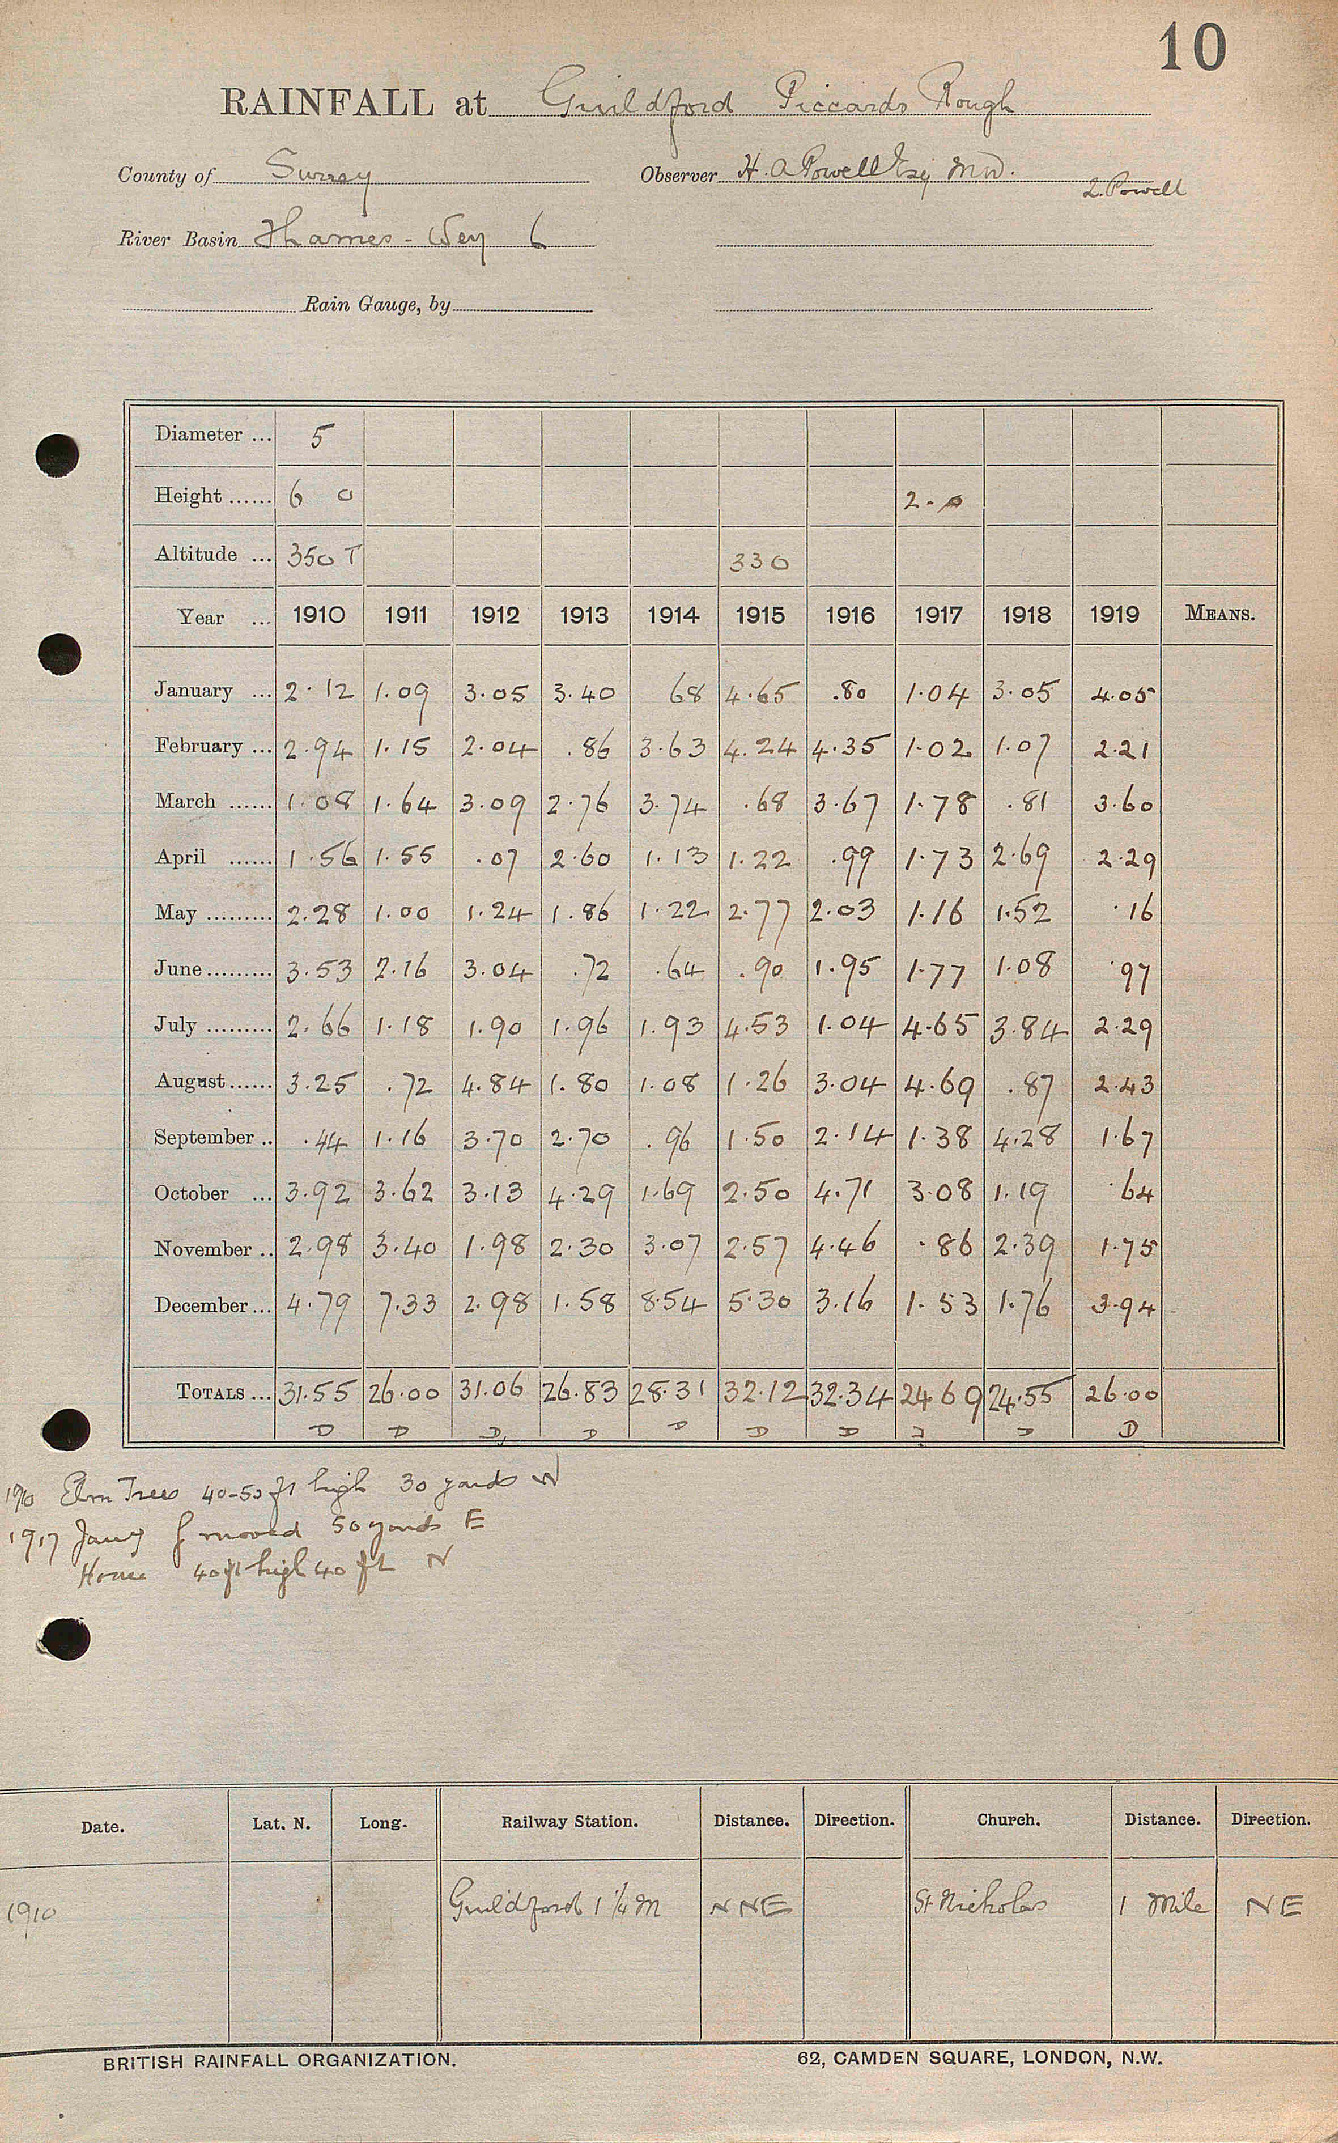 10
RAINFALL at Guildford Piccards Rough
County of Surrey Observer H. A Powell Esq MD.
2. Powell
River Basin Thames - Wey 6
Rain Gauge, by
Diameter ... 5
Height ...... 6 0 2-0
Altitude ... 350 T 330
Year ... 1910 1911 1912 1913 1914 1915 1916 1917 1918 1919 MEANS.
January ... 2.12 1.09 3.05 3.40 68 4.65 .80 1.04 3.05 4.05
February ... 2.94 1.15 2.04 .86 3.63 4.24 4.35 1.02 1.07 2.21
March ...... 1.08 1.64 3.09 2.76 3.74 .68 3.67 1.78 .81 3.60
April ...... 1.56 1.55 .07 2.60 1.13 1.22 .99 1.73 2.69 2.29
May ......... 2.28 1.00 1.24 1.86 1.22 2.77 2.03 1.16 1.52 .16
June ......... 3.53 2.16 3.04 .72 .64 .90 1.95 1.77 1.08 .97
July ......... 2.66 1.18 1.90 1.96 1.93 4.53 1.04 4.65 3.84 2.29
August ...... 3.25 .72 4.84 1.80 1.08 1.26 3.04 4.69 .87 2.43
September .. .44 1.16 3.70 2.70 .96 1.50 2.14 1.38 4.28 1.67
October ... 3.92 3.62 3.13 4.29 1.69 2.50 4.71 3.08 1.19 .64
November .. 2.98 3.40 1.98 2.30 3.07 2.57 4.46 .86 2.39 1.75
December ... 4.79 7.33 2.98 1.58 8.54 5.30 3.16 1.53 1.76 3.94
TOTALS ... 31.55 26.00 31.06 26.83 28.31 32.12 32.34 24 69 24.55 26.00
D D D D D D D D D D
1910 Elm Trees 40-50 ft high 30 yards W
1917 Jany g moved 50 yards E
House 40ft high 40 ft N
Date. Lat. N. Long. Railway Station. Distance. Direction. Church. Distance. Direction.
1910 Guildford 1 1/4 M NNE St Nicholas 1 Mile NE
BRITISH RAINFALL ORGANIZATION. 62, CAMDEN SQUARE, LONDON, N.W.